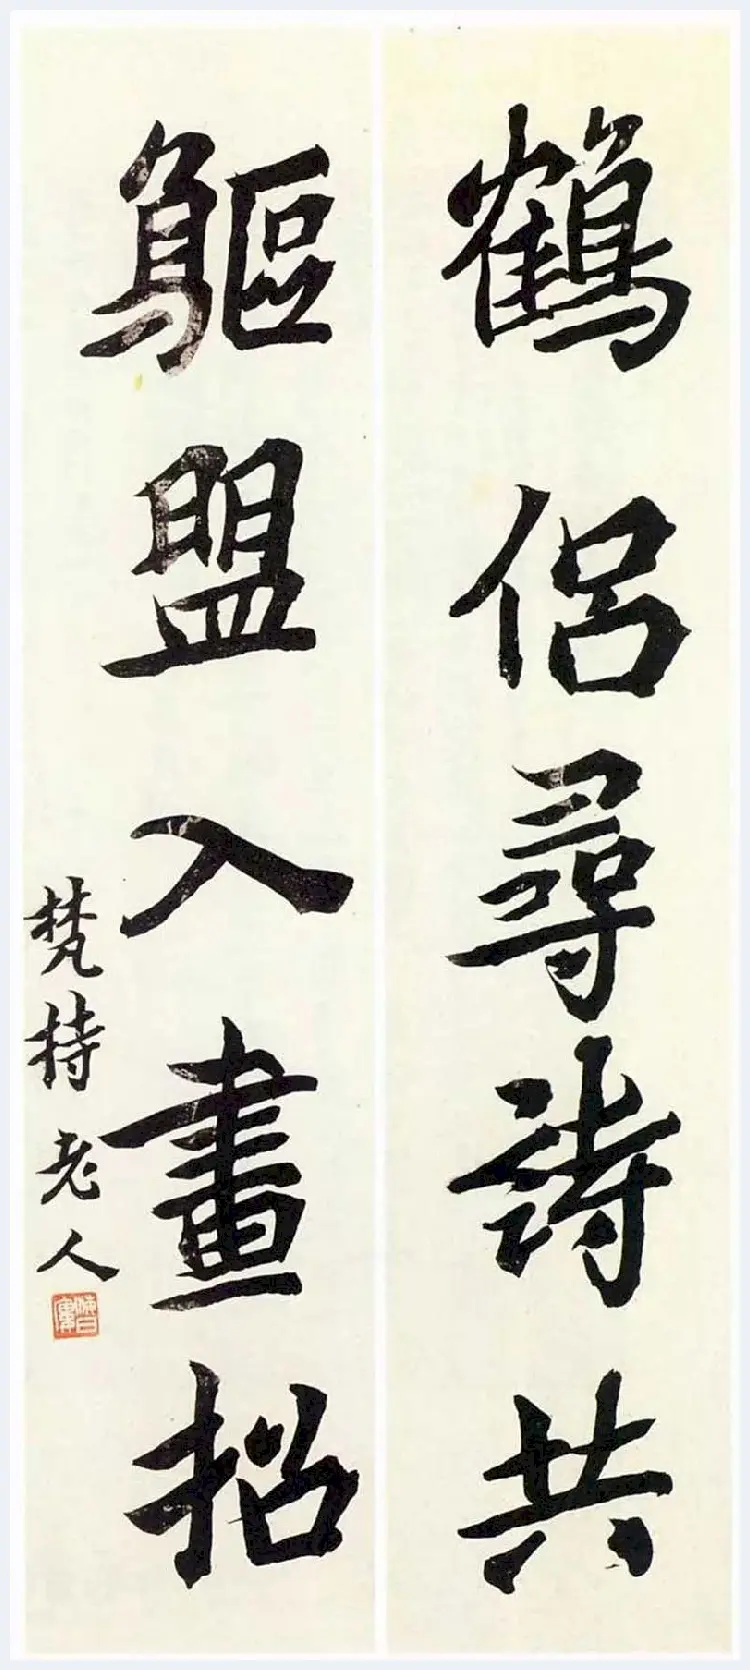 鶴侶尋詩共
軀盟入畫招
梵持老人